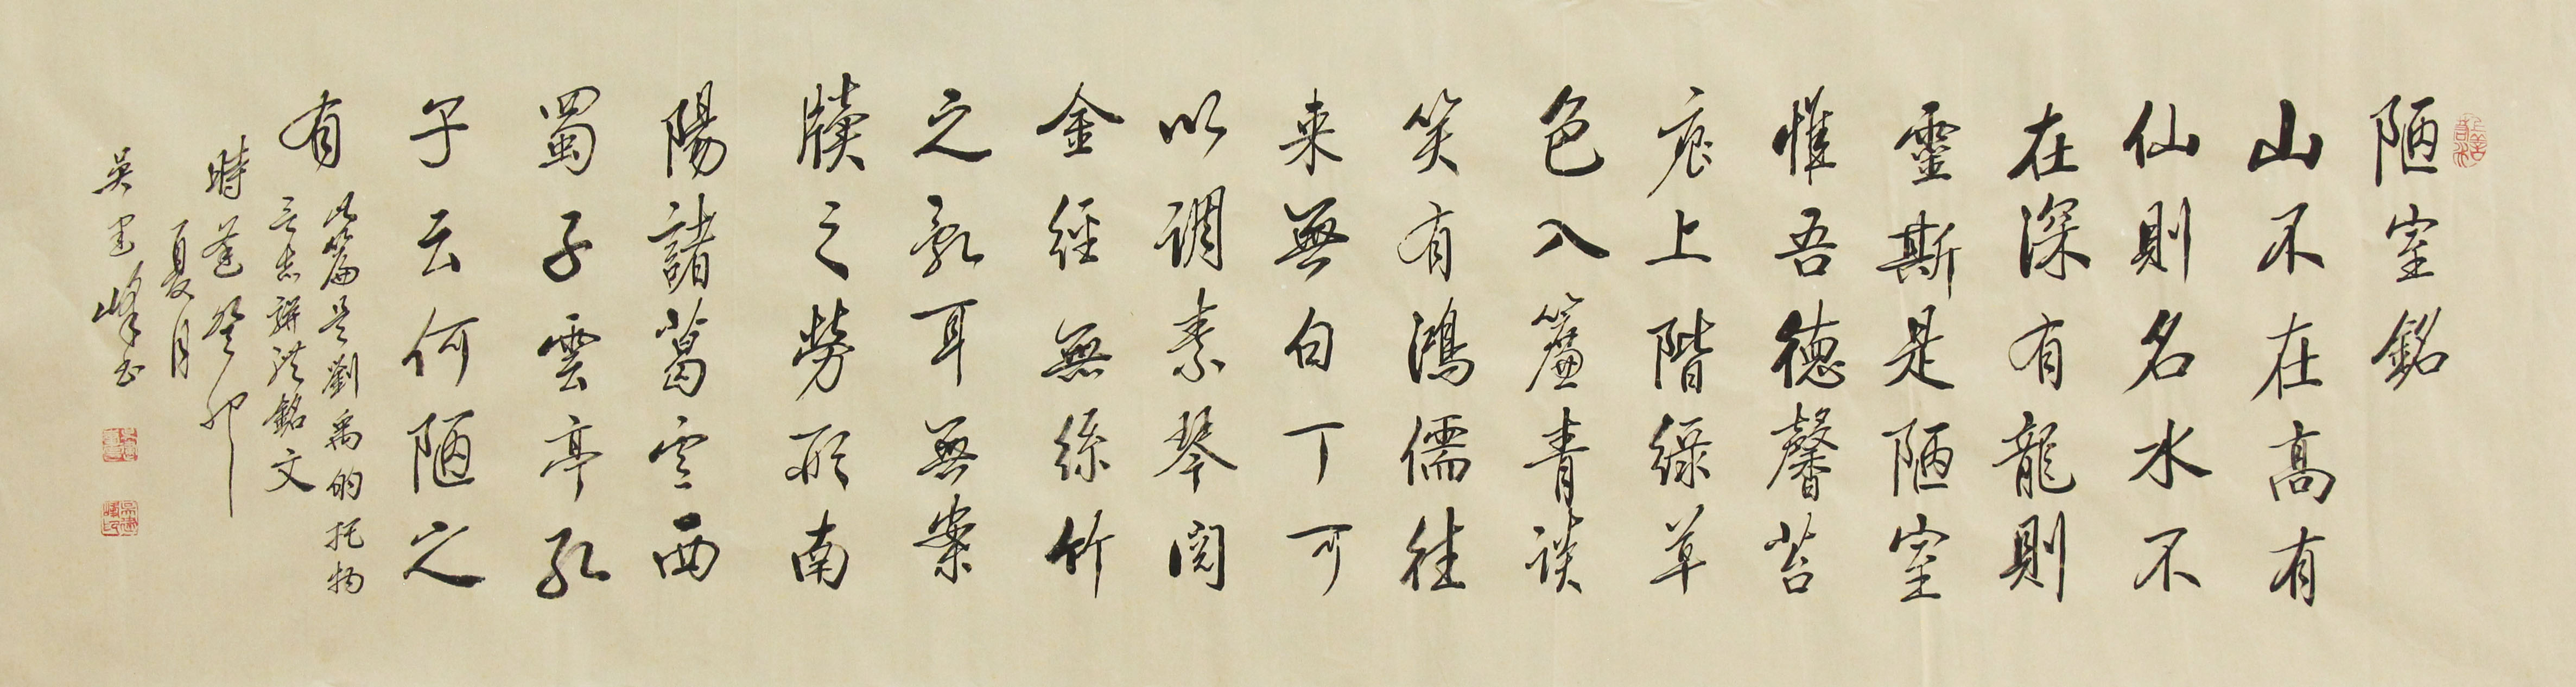 陋室銘
山不在高有
仙則名水不
在深有龍則
靈斯是陋室
惟吾德馨苔
痕上階綠草
色入簾青談
笑有鴻儒往
来無白丁可
以調素琴閱
金經無絲竹
之亂耳無案
牘之勞形南
陽諸葛雲西
蜀子雲亭孔
子云何陋之
有
此篇是劉禹的托物
言志駢體銘文
時逢癸卯
夏月
吴建峰书
上善若水